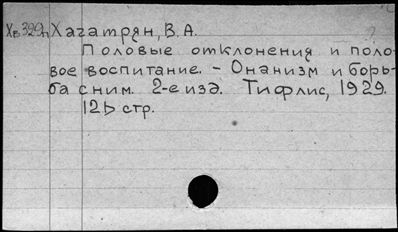 Хв 329п Хачатрян, В. А.
Половые отклонения и поло-
вое воспитание. – Онанизм и борь-
ба с ним. 2-е изд. Тифлис, 1929.
стр.